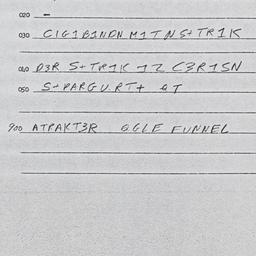 020 –
030 CIGIBINDN MIT N S+TRIK
040 D3R S+TRIK IZ C3RISN
050 S+PARGURT+ QT
900 ATPAKT3R OGLE FUNNEL